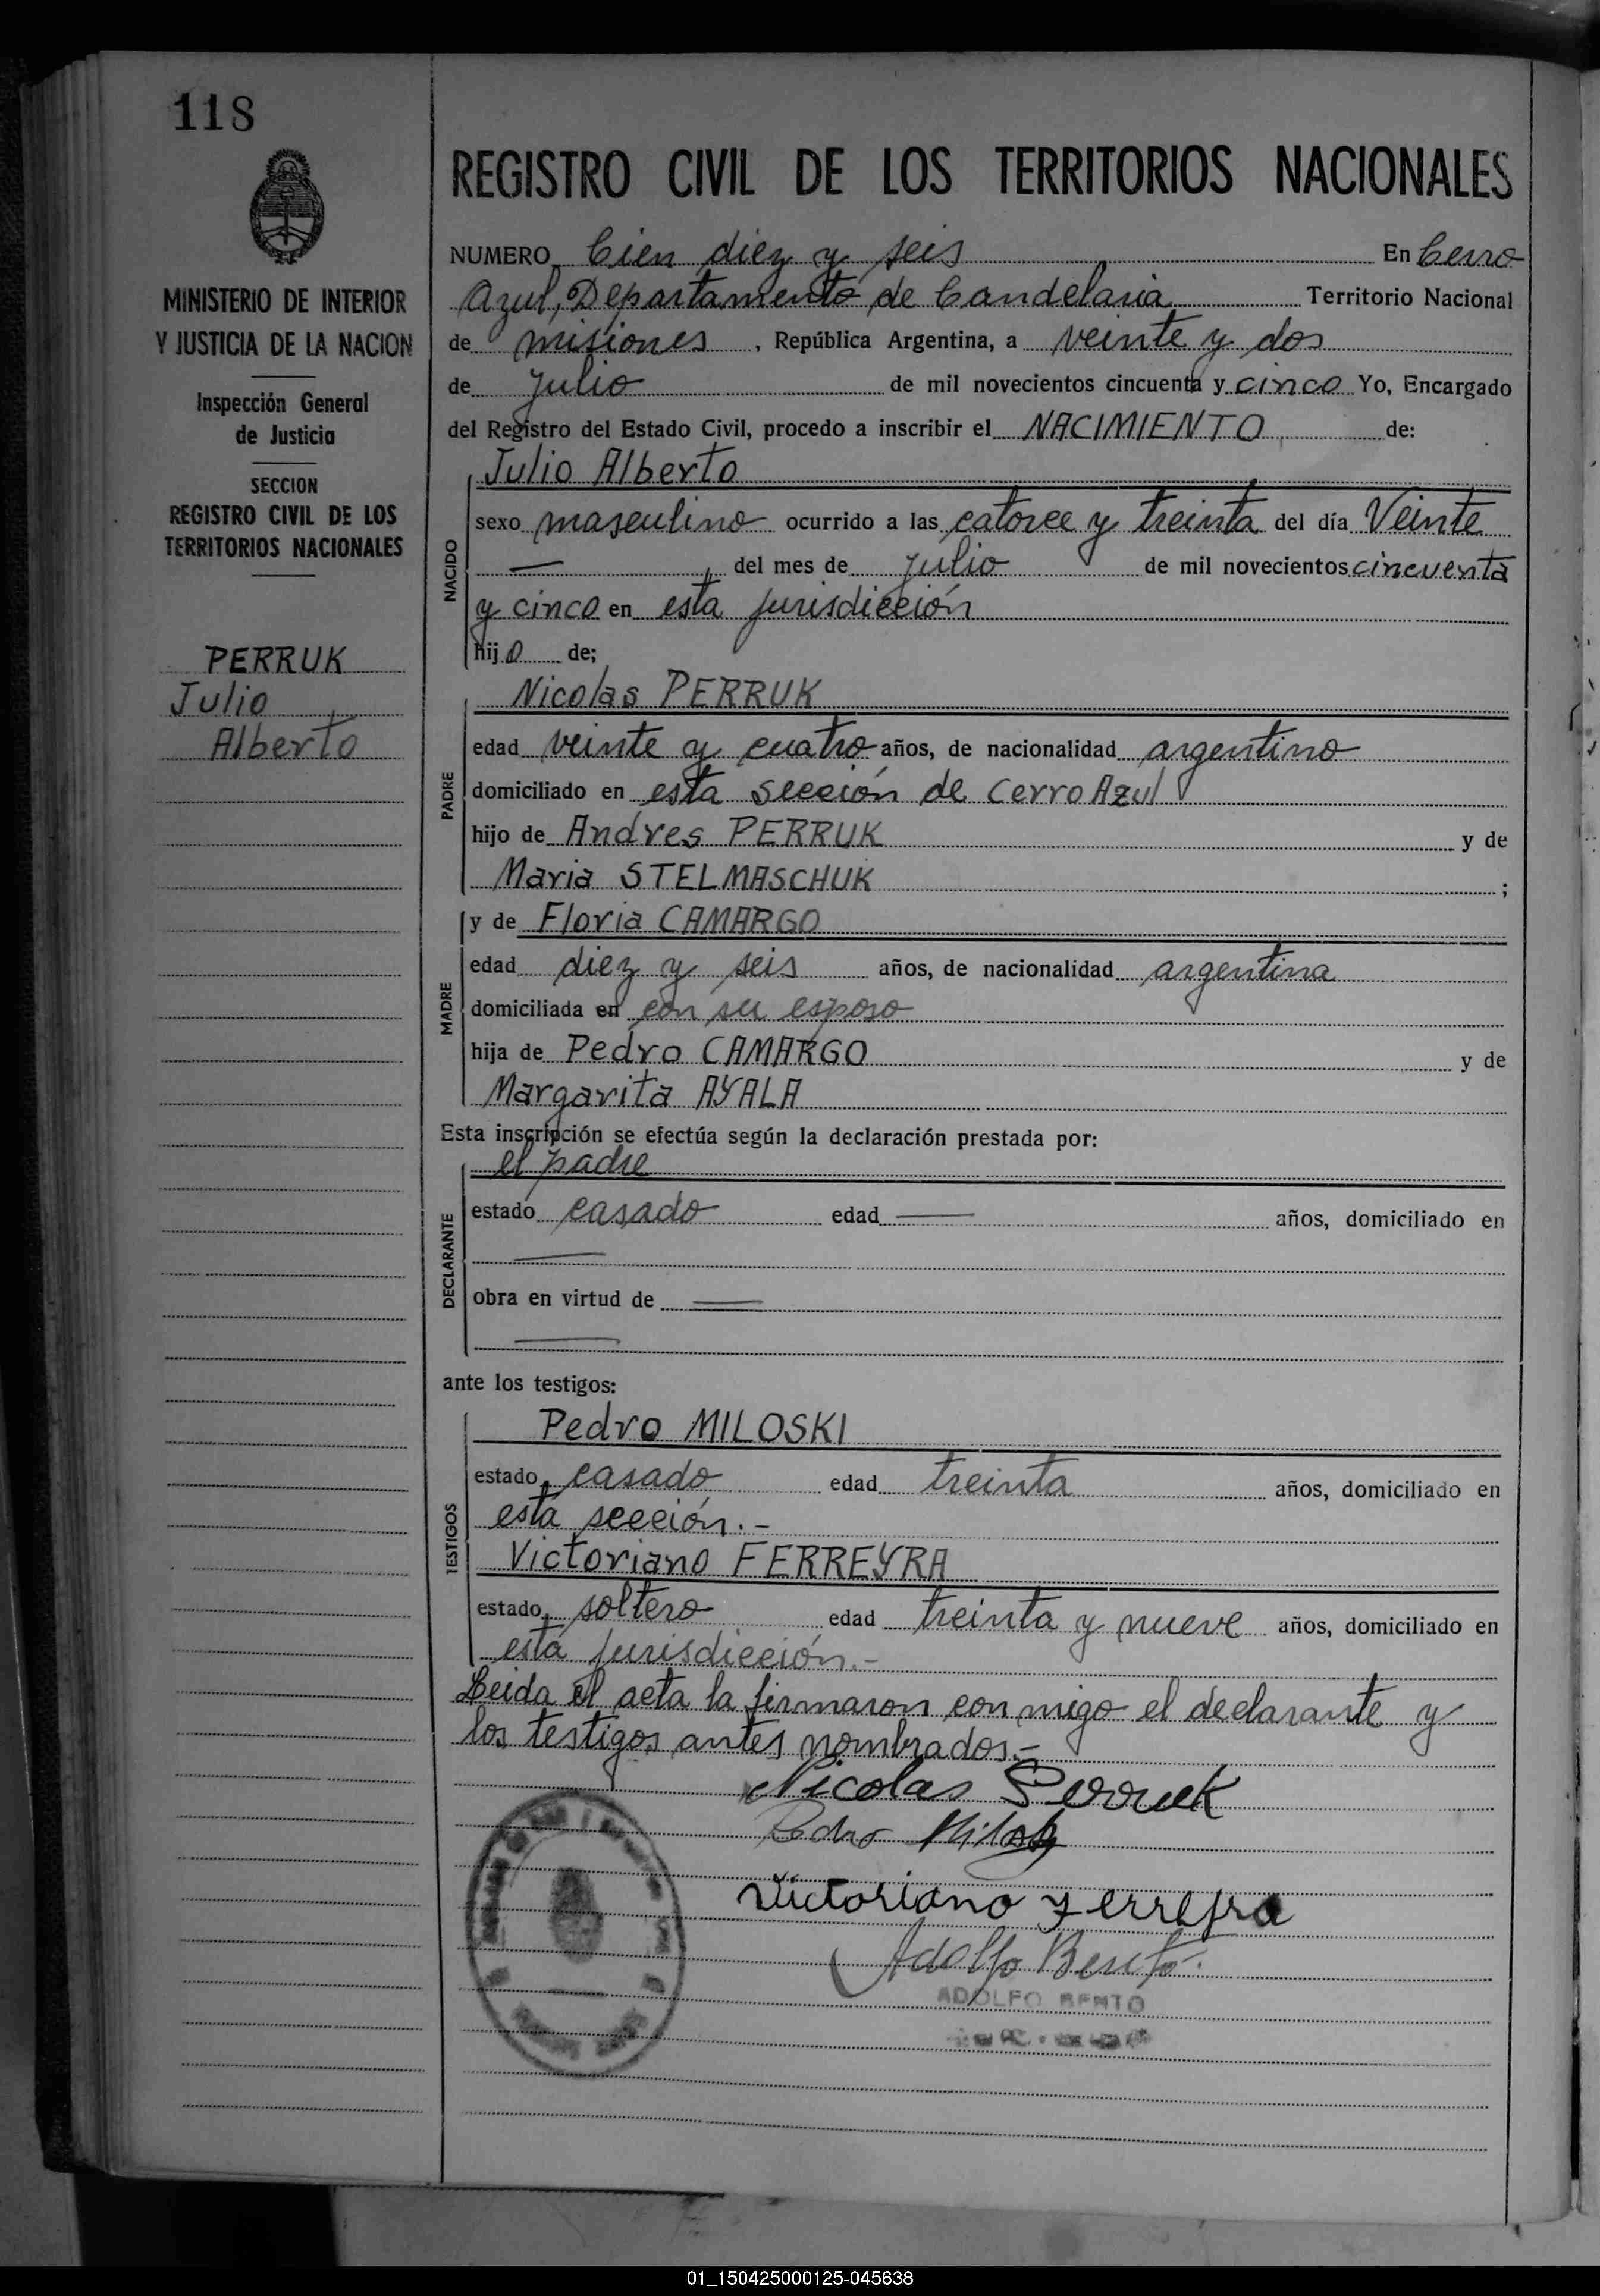 118
MINISTERIO DE INTERIOR
Y JUSTICIA DE LA NACION
Inspección General
de Justicia
SECCION
REGISTRO CIVIL DE LOS
TERRITORIOS NACIONALES
PERRUK
Julio
Alberto
REGISTRO CIVIL DE LOS TERRITORIOS NACIONALES
NUMERO Cien diez y seis En Cerro
Azul, Departamento de Candelaria Territorio Nacional
de misiones, República Argentina, a veinte y dos
de julio de mil novecientos cincuenta y cinco Yo, Encargado
del Registro del Estado Civil, procedo a inscribir el NACIMIENTO de:
NACIDO
Julio Alberto
sexo masculino ocurrido a las catorce y treinta del día Veinte
— del mes de julio de mil novecientos cincuenta
y cinco en esta jurisdicción
hijo de;
PADRE
Nicolas PERRUK
edad veinte y cuatro años, de nacionalidad argentino
domiciliado en esta sección de Cerro Azul
hijo de Andres PERRUK y de
Maria STELMASCHUK ;
MADRE
y de Floria CAMARGO
edad diez y seis años, de nacionalidad argentina
domiciliada en con su esposo
hija de Pedro CAMARGO y de
Margarita AYALA
Esta inscripción se efectúa según la declaración prestada por:
DECLARANTE
el padre
estado casado edad — años, domiciliado en
—
obra en virtud de —
—
ante los testigos:
TESTIGOS
Pedro MILOSKI
estado casado edad treinta años, domiciliado en
esta sección.-
Victoriano FERREYRA
estado soltero edad treinta y nueve años, domiciliado en
esta jurisdicción.-
Leida el acta la firmaron con migo el declarante y
los testigos antes nombrados.-
Nicolas Perruk
Pedro
Victoriano Ferreyra
Adolfo Bento
ADOLFO BENTO
01_150425000125-045638